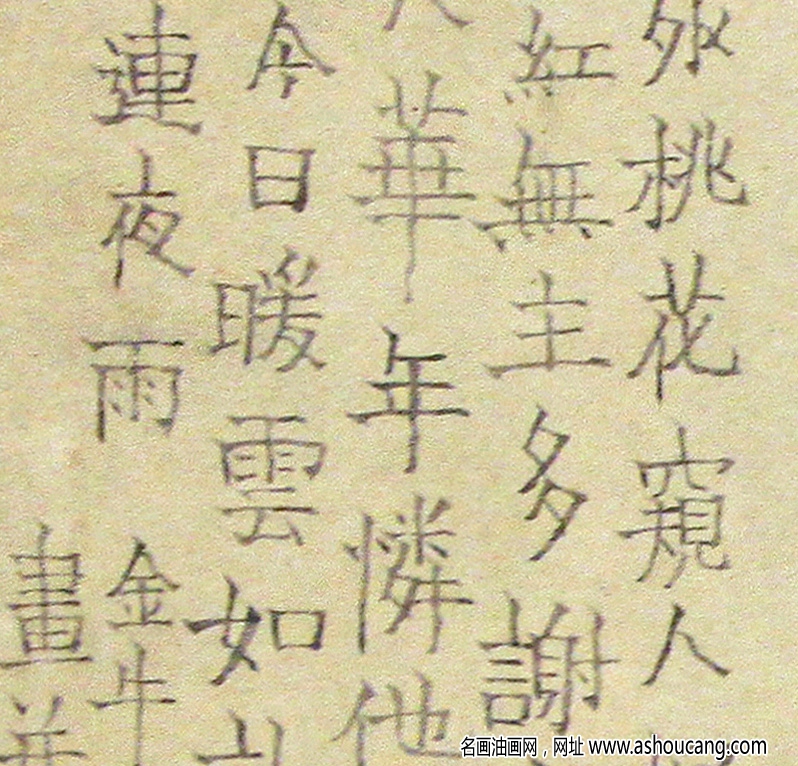 桃花窺人
紅無主多謝
華年憐他
今日暖雲如
連夜雨 金牛
畫并
名画油画网，网址 www.ashoucang.com